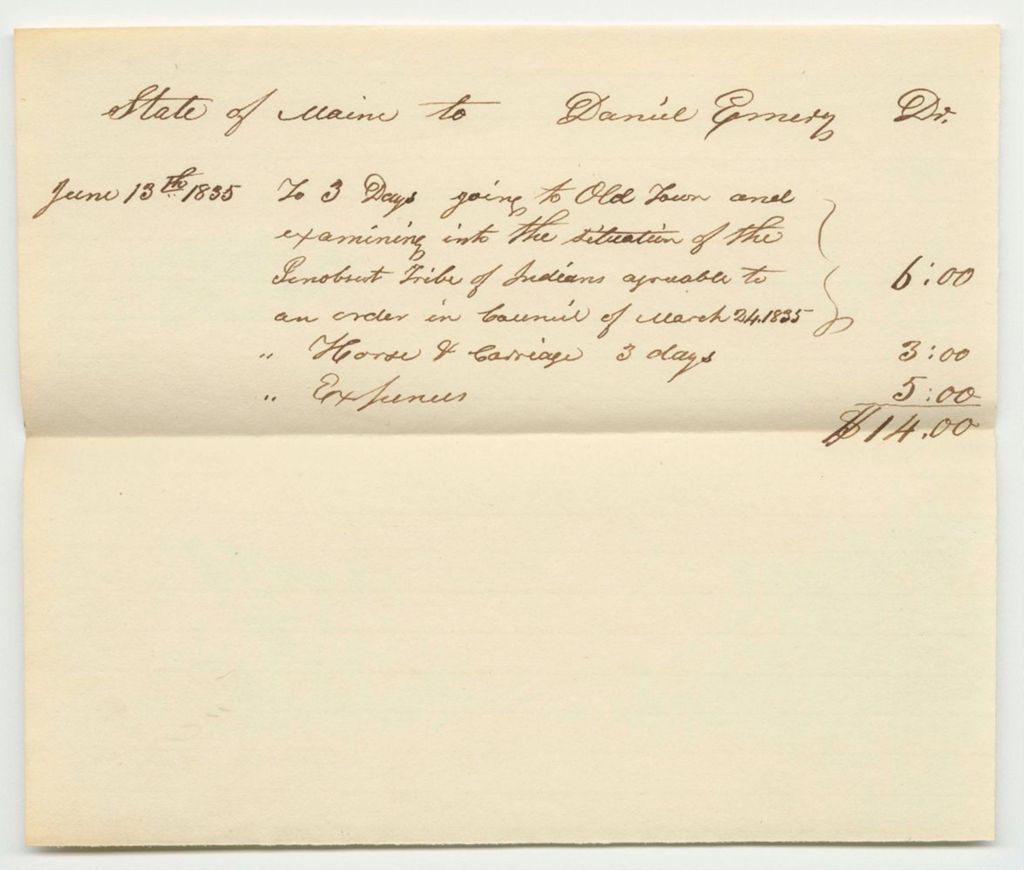 State of Maine to Daniel Emery Dr.
June 13th 1835 To 3 Days going to Old Town and
examining into the situation of the
Penobscot Tribe of Indians agreeable to 6:00
an order in Council of March 24.1835
" Horse & Carriage 3 days 3:00
" Expenses 5:00
$14.00